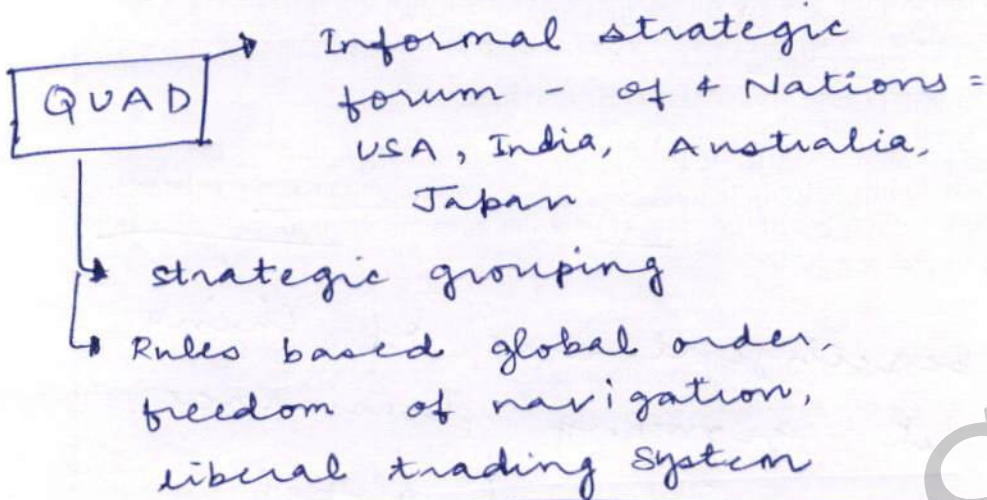 Informal strategic
QUAD
forum - of 4 Nations =
USA, India, Australia,
Japan
strategic grouping
Rules based global order,
freedom of navigation,
liberal trading System